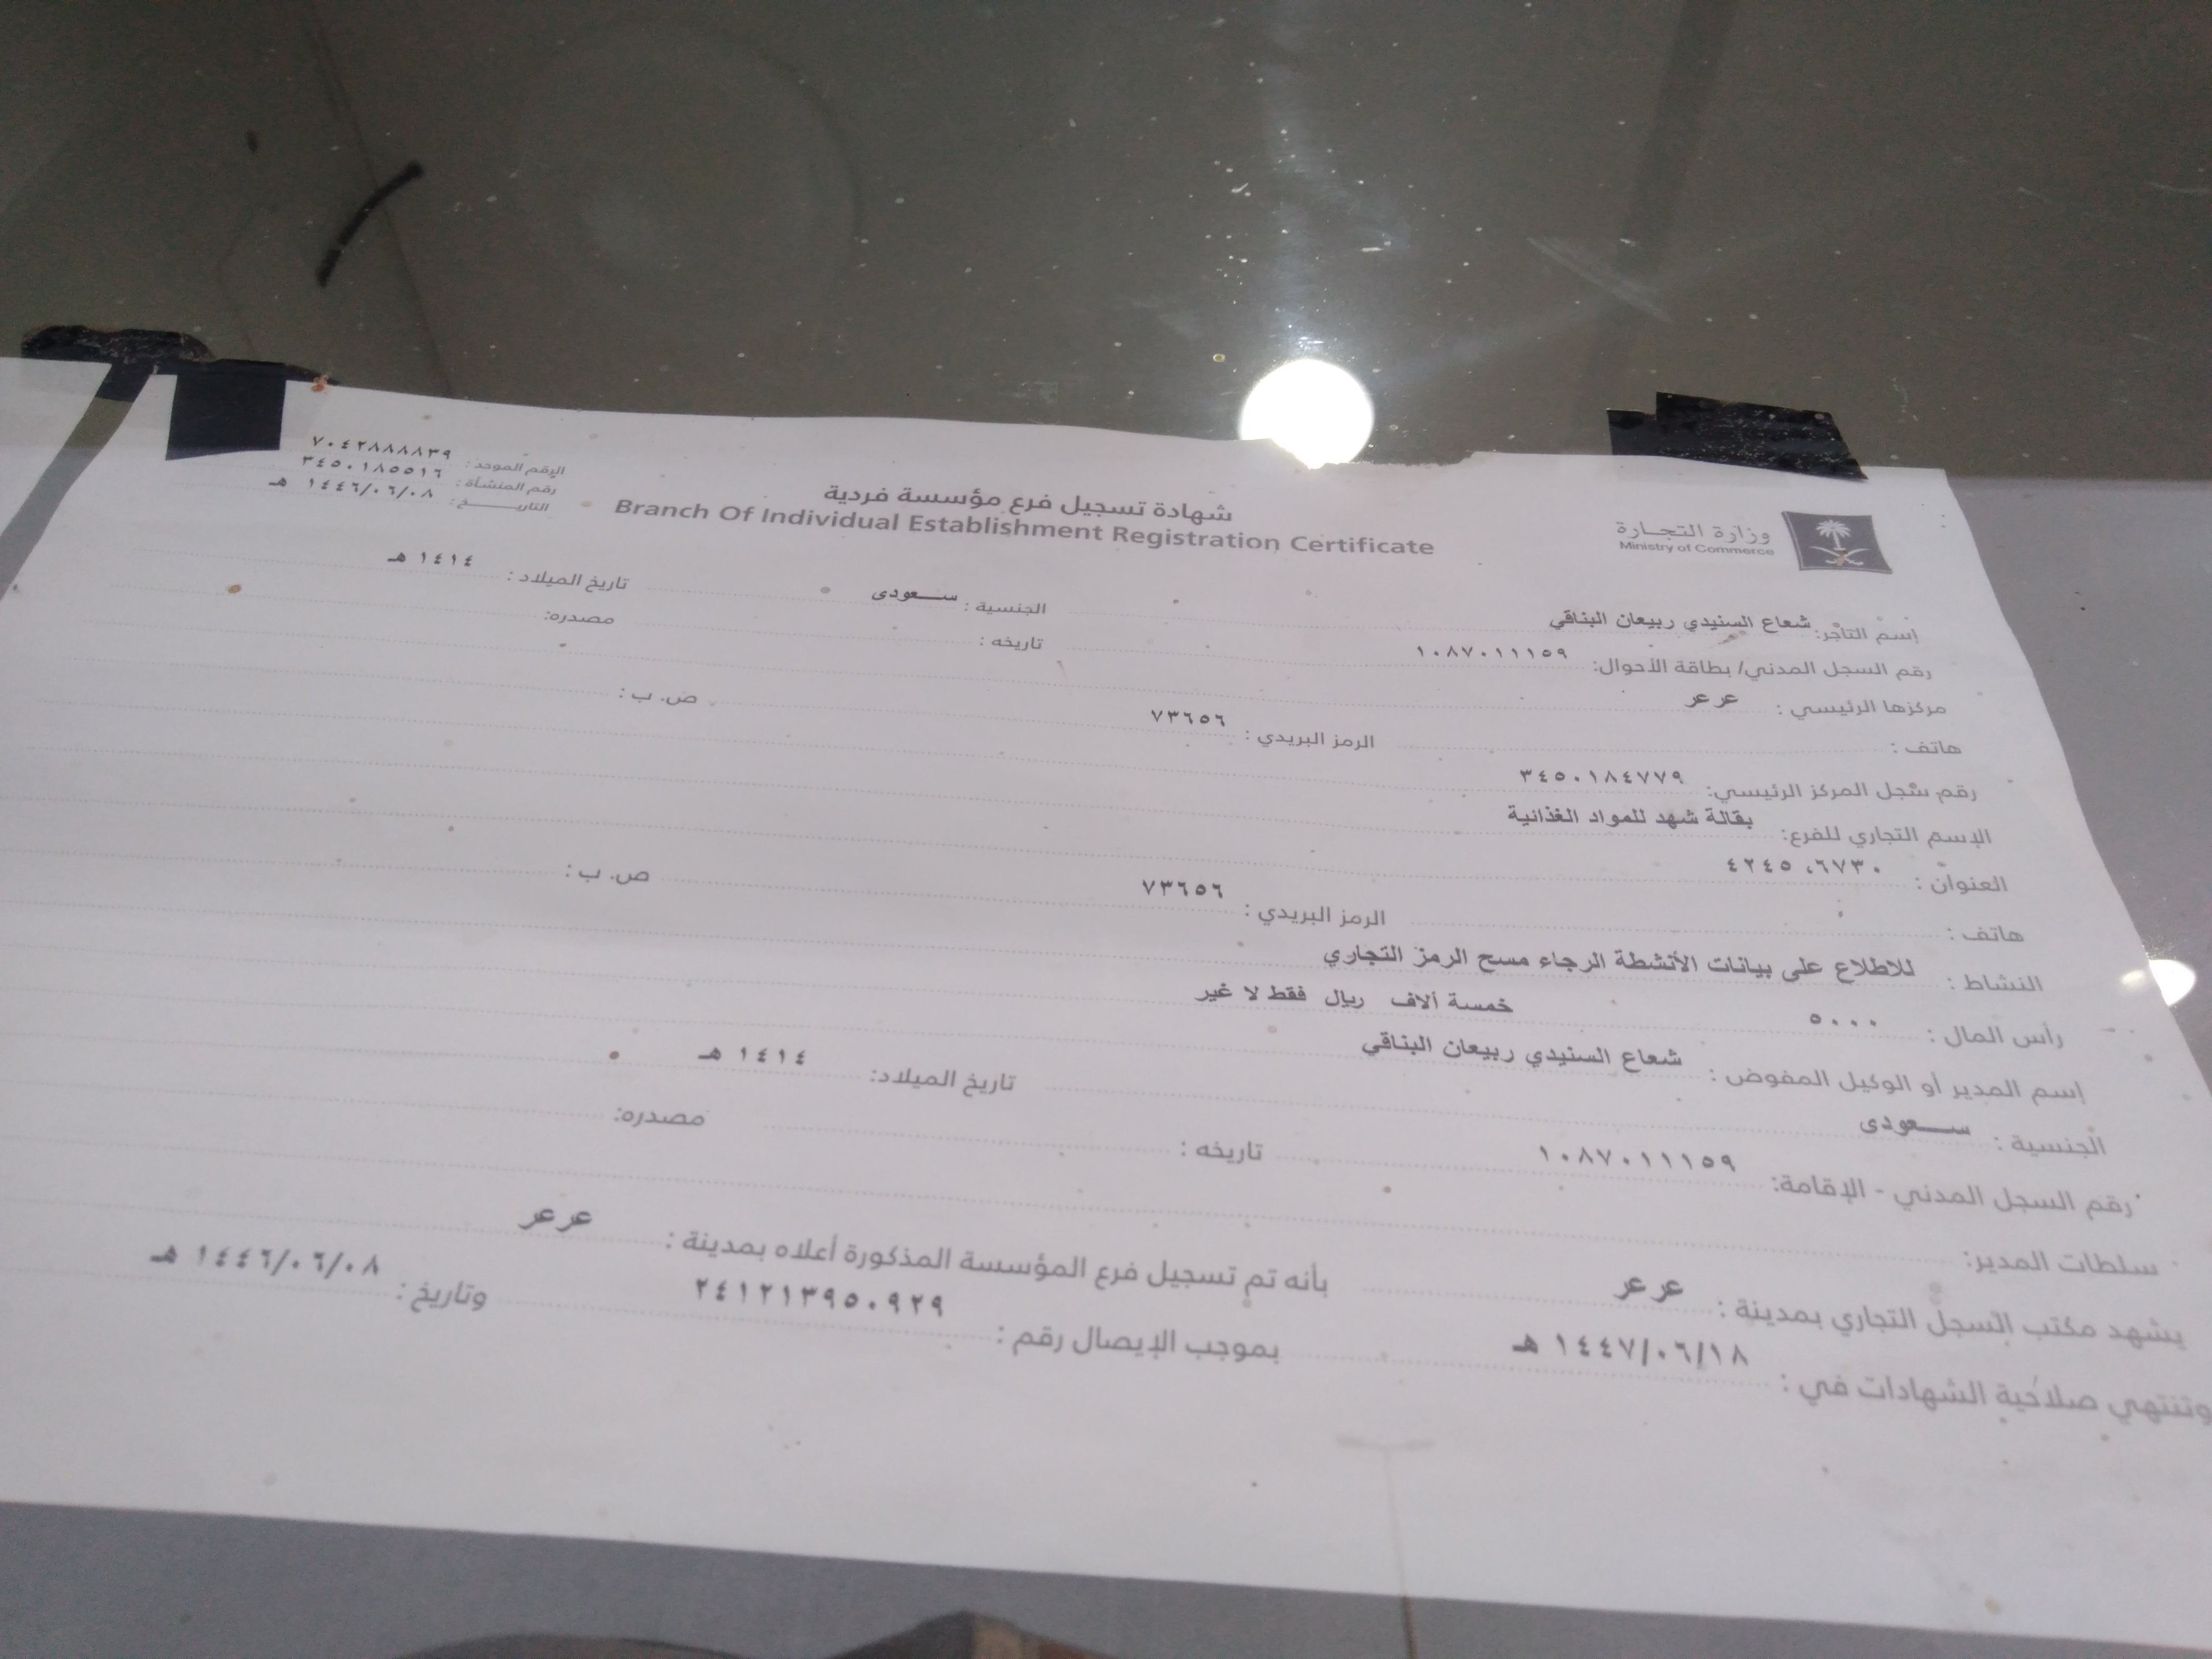 الرقم الموحد : ٧٠٤٢٨٨٨٨٣٩
رقم المنشأة : ٣٤٥٠١٨٥٥١٦
التاريـــــخ : ١٤٤٦/٠٦/٠٨ هـ
وزارة التجـارة
Ministry of Commerce
شهادة تسجيل فرع مؤسسة فردية
Branch Of Individual Establishment Registration Certificate
إسم التاجر: شعاع السنيدي ربيعان البناقي الجنسية : ســـعودى تاريخ الميلاد : ١٤١٤ هـ
رقم السجل المدني/ بطاقة الأحوال: ١٠٨٧٠١١١٥٩ تاريخه : مصدره:
مركزها الرئيسي : عرعر
هاتف : الرمز البريدي : ٧٣٦٥٦ ص. ب :
رقم سجل المركز الرئيسي: ٣٤٥٠١٨٤٧٧٩
الإسم التجاري للفرع: بقالة شهد للمواد الغذائية
العنوان : ٦٧٣٠، ٤٢٤٥
هاتف : الرمز البريدي : ٧٣٦٥٦ ص. ب :
النشاط : للاطلاع على بيانات الأنشطة الرجاء مسح الرمز التجاري
رأس المال : ٥٠٠٠ خمسة ألاف ريال فقط لا غير
إسم المدير أو الوكيل المفوض : شعاع السنيدي ربيعان البناقي تاريخ الميلاد: ١٤١٤ هـ
الجنسية : ســـعودى
رقم السجل المدني - الإقامة: ١٠٨٧٠١١١٥٩ تاريخه : مصدره:
سلطات المدير:
يشهد مكتب السجل التجاري بمدينة : عرعر بأنه تم تسجيل فرع المؤسسة المذكورة أعلاه بمدينة : عرعر
وتنتهي صلاحية الشهادات في : ١٤٤٧/٠٦/١٨ هـ بموجب الإيصال رقم : ٢٤١٢١٣٩٥٠٩٢٩ وتاريخ : ١٤٤٦/٠٦/٠٨ هـ